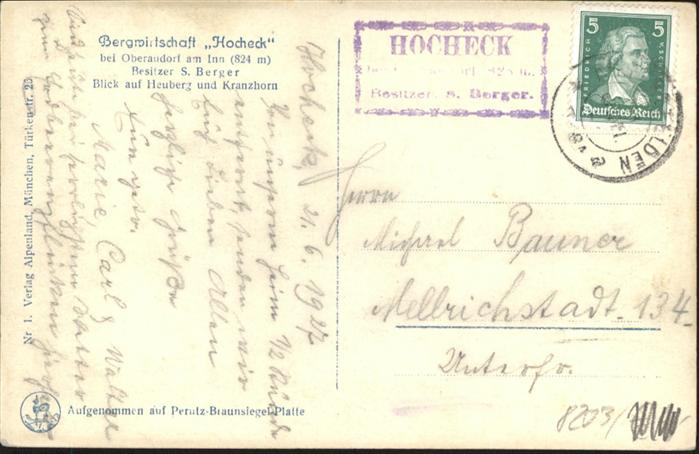 Bergwirtschaft „Hocheck"
bei Oberaudorf am Inn (824 m)
Besitzer S. Berger
Blick auf Heuberg und Kranzhorn
HOCHECK
Besitzer: S. Berger.
5 5
FRIEDRICH V. SCHILLER
Deutsches Reich
Hocheck, 21.6.1927
Von unserm Heim 1/2 Stunde
entfernt, senden wir
Euch Lieben Allen
herzliche Grüße
Eure
Marie, Carl & Walter
Herrn
Michael Bauner
Mellrichstadt. 134.
Unterfr.
8203/
Nr 1. Verlag Alpenland, München, Türkenstr. 25
Aufgenommen auf Perutz-Braunsiegel-Platte